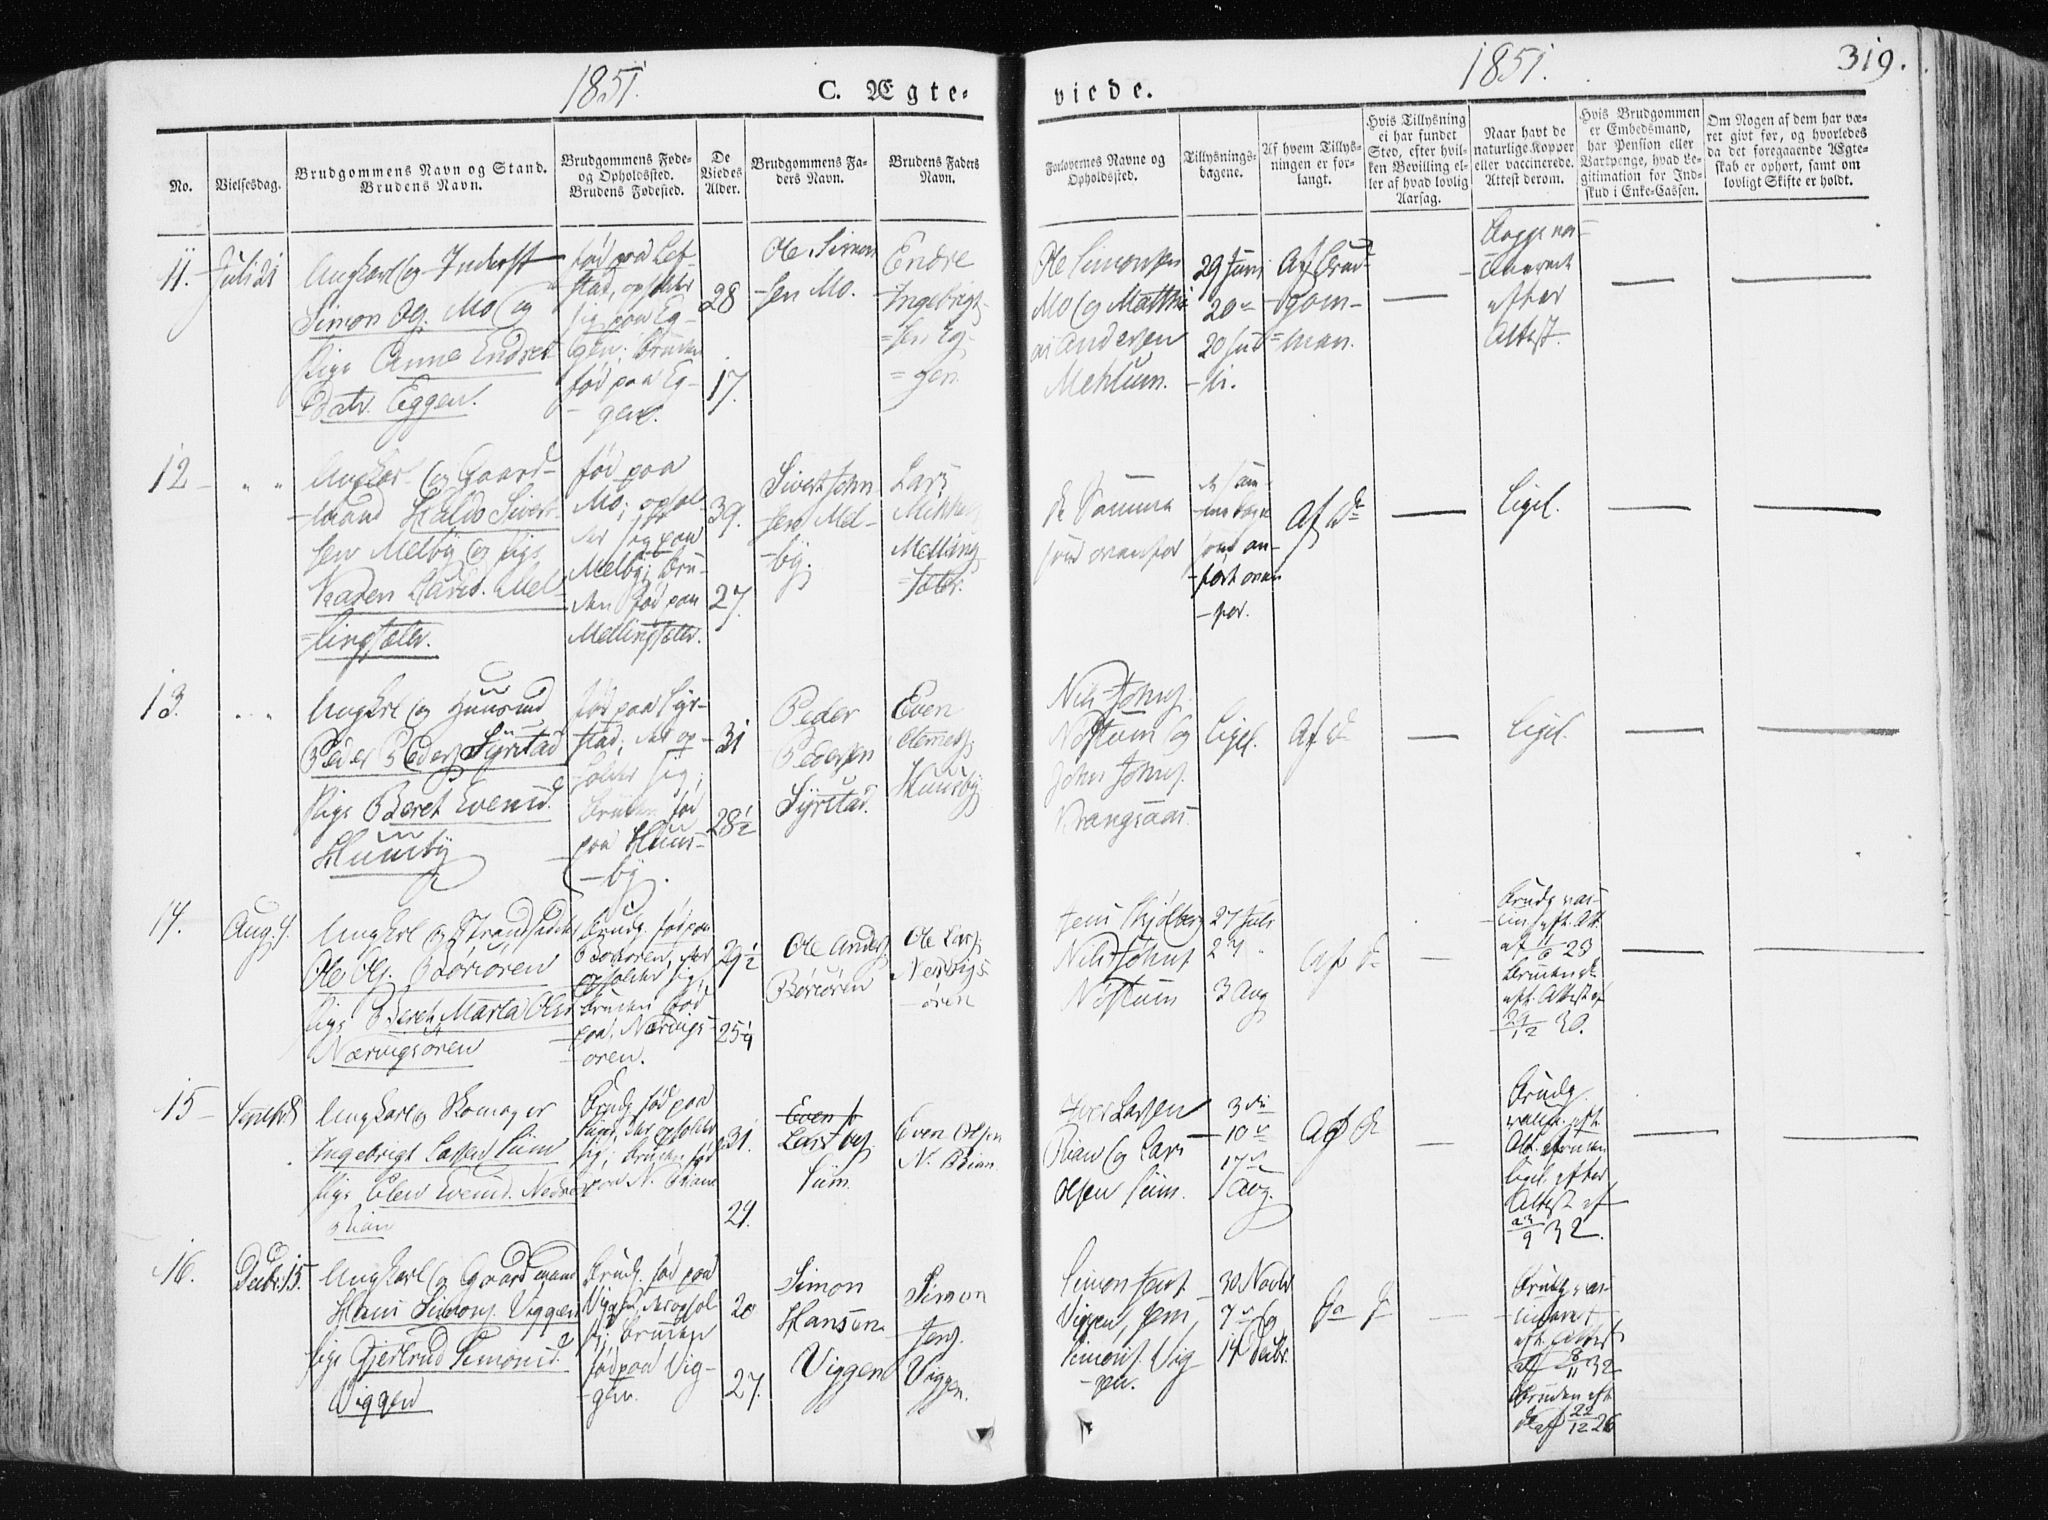 1851.
C. Ægte-
viede.
1851.
319.
No.
Vielsesdag.
Brudgommens Navn og Stand.
Brudens Navn.
Brudgommens Føde-
og Opholdssted.
Brudens Fødested.
De
Viedes
Alder.
Brudgommens Fa-
ders Navn.
Brudens Faders
Navn.
Forlovernes Navne og
Opholdssted.
Tillysnings-
dagene.
Af hvem Tillys-
ningen er for-
langt.
Hvis Tillysning
ei har fundet
Sted, efter hvil-
ken Bevilling el-
ler af hvad lovlig
Aarsag.
Naar havt de
naturlige Kopper
eller vaccinerede.
Attest derom.
Hvis Brudgommen
er Embedsmand,
har Pension eller
Vartpenge, hvad Le-
gitimation for Ind-
skud i Enke-Cassen.
Om Nogen af dem har væ-
ret givt før, og hvorledes
da det foregaaende Ægte-
skab er ophørt, samt om
lovligt Skifte er holdt.
11.
Juli 21
Ungkarl og Inderst
Simon Ols. Mo og
Pige Anna Endres
Datr. Eggen.
fød paa
stad, opholder
sig paa Eg-
gen; Bruden
fød paa Eg-
gen.
28
17.
Ole Simon
-sen Mo.
Endre
Ingebrigt-
=sen Eg-
=gen.
Ole Simonsen
Mo og Matthi
as Andersen
Mehlum.
29 Juni
20
20 Ju-
-li.
Af Brud-
-gom-
=men.
efter
Attest.
12
" "
Ungkarl og Gaard-
-mand Halvo Sivert-
sen Melby og Pige
Karen Larsd. Mel-
=lingsæter.
fød paa
Mo; ophol-
der sig paa
Melby; Bru-
den fød paa
Mellingsæter.
39.
27.
Sivert John
-sen Mel-
-by.
Lars
Mikkels
Melling
=sæter.
de Samme
som ovenfor
de sam-
-me Dage
som an-
-ført oven
-for.
Af do
Ligel.
13.
" "
Ungkrl og Huusmd
Peder Peders. Syrstad
Pige Beret Evensd.
Huusby
fød paa Syr-
stad; der op-
holder sig;
Bruden fød
paa Huus-
-by.
31
28½
Peder
Pedersen
Syrstad.
Even
Huusby
Nils Johns.
Nostum og
John Johns.
Vrangsaas.
Ligel.
Af do
Ligel.
14.
Aug. 4.
Ungkrl og Strandsidder
Ole Ols. Börören
Pige Beret Marta Olsd
Næringsören
Brudg. fød paa
Börören, der
opholder sig,
Bruden fød
paa Nærings-
-ören.
29½
25¼
Ole Anders.
Börören
Ole Lars.
Nerings-
-ören
Jens Kjölberg
Nils Johns
Nostum
27 Juli
27 "
3 Aug
Af do
Brudg vac-
cin. eft. Att.
af 11/6 23
Bruden do
eft. Attest af
29/12 30.
15
Ungkarl og Skomager
Ingebrigt Larsen Sum
Pige Elen Evensd. Nedre
Rian
Brudg. fød paa
Sum, der opholder
sig; Bruden fød
paa N. Rian
31.
29.
Even
Lars Ols.
Sum.
Even Olsen
N. Rian.
Iver Larsen
Rian og Lars
Olsen Sum.
3die
10de
17de
Aug.
Af do
Brudg.
vacc. eft.
Att. Bruden
ligel. efter
Attest af
23/9 32.
16.
Decbr. 15.
Ungkarl og Gaardmand
Hans Simons. Viggen
Pige Gjertrud Simonsd.
Viggen
Brudg. fød paa
Viggen, der ophol.
sig; Bruden
fød paa Vig-
-gen.
20
27.
Simon
Hansen
Viggen
Simon
Jens.
Viggen.
Simon Jens
Viggen, Jens
Simons. Vig-
-gen.
30 Novbr
7de og
14 Decbr.
Brudg vac-
cineret
eft. Attest
af 8/11 32
Bruden eft.
do af 22/12 26